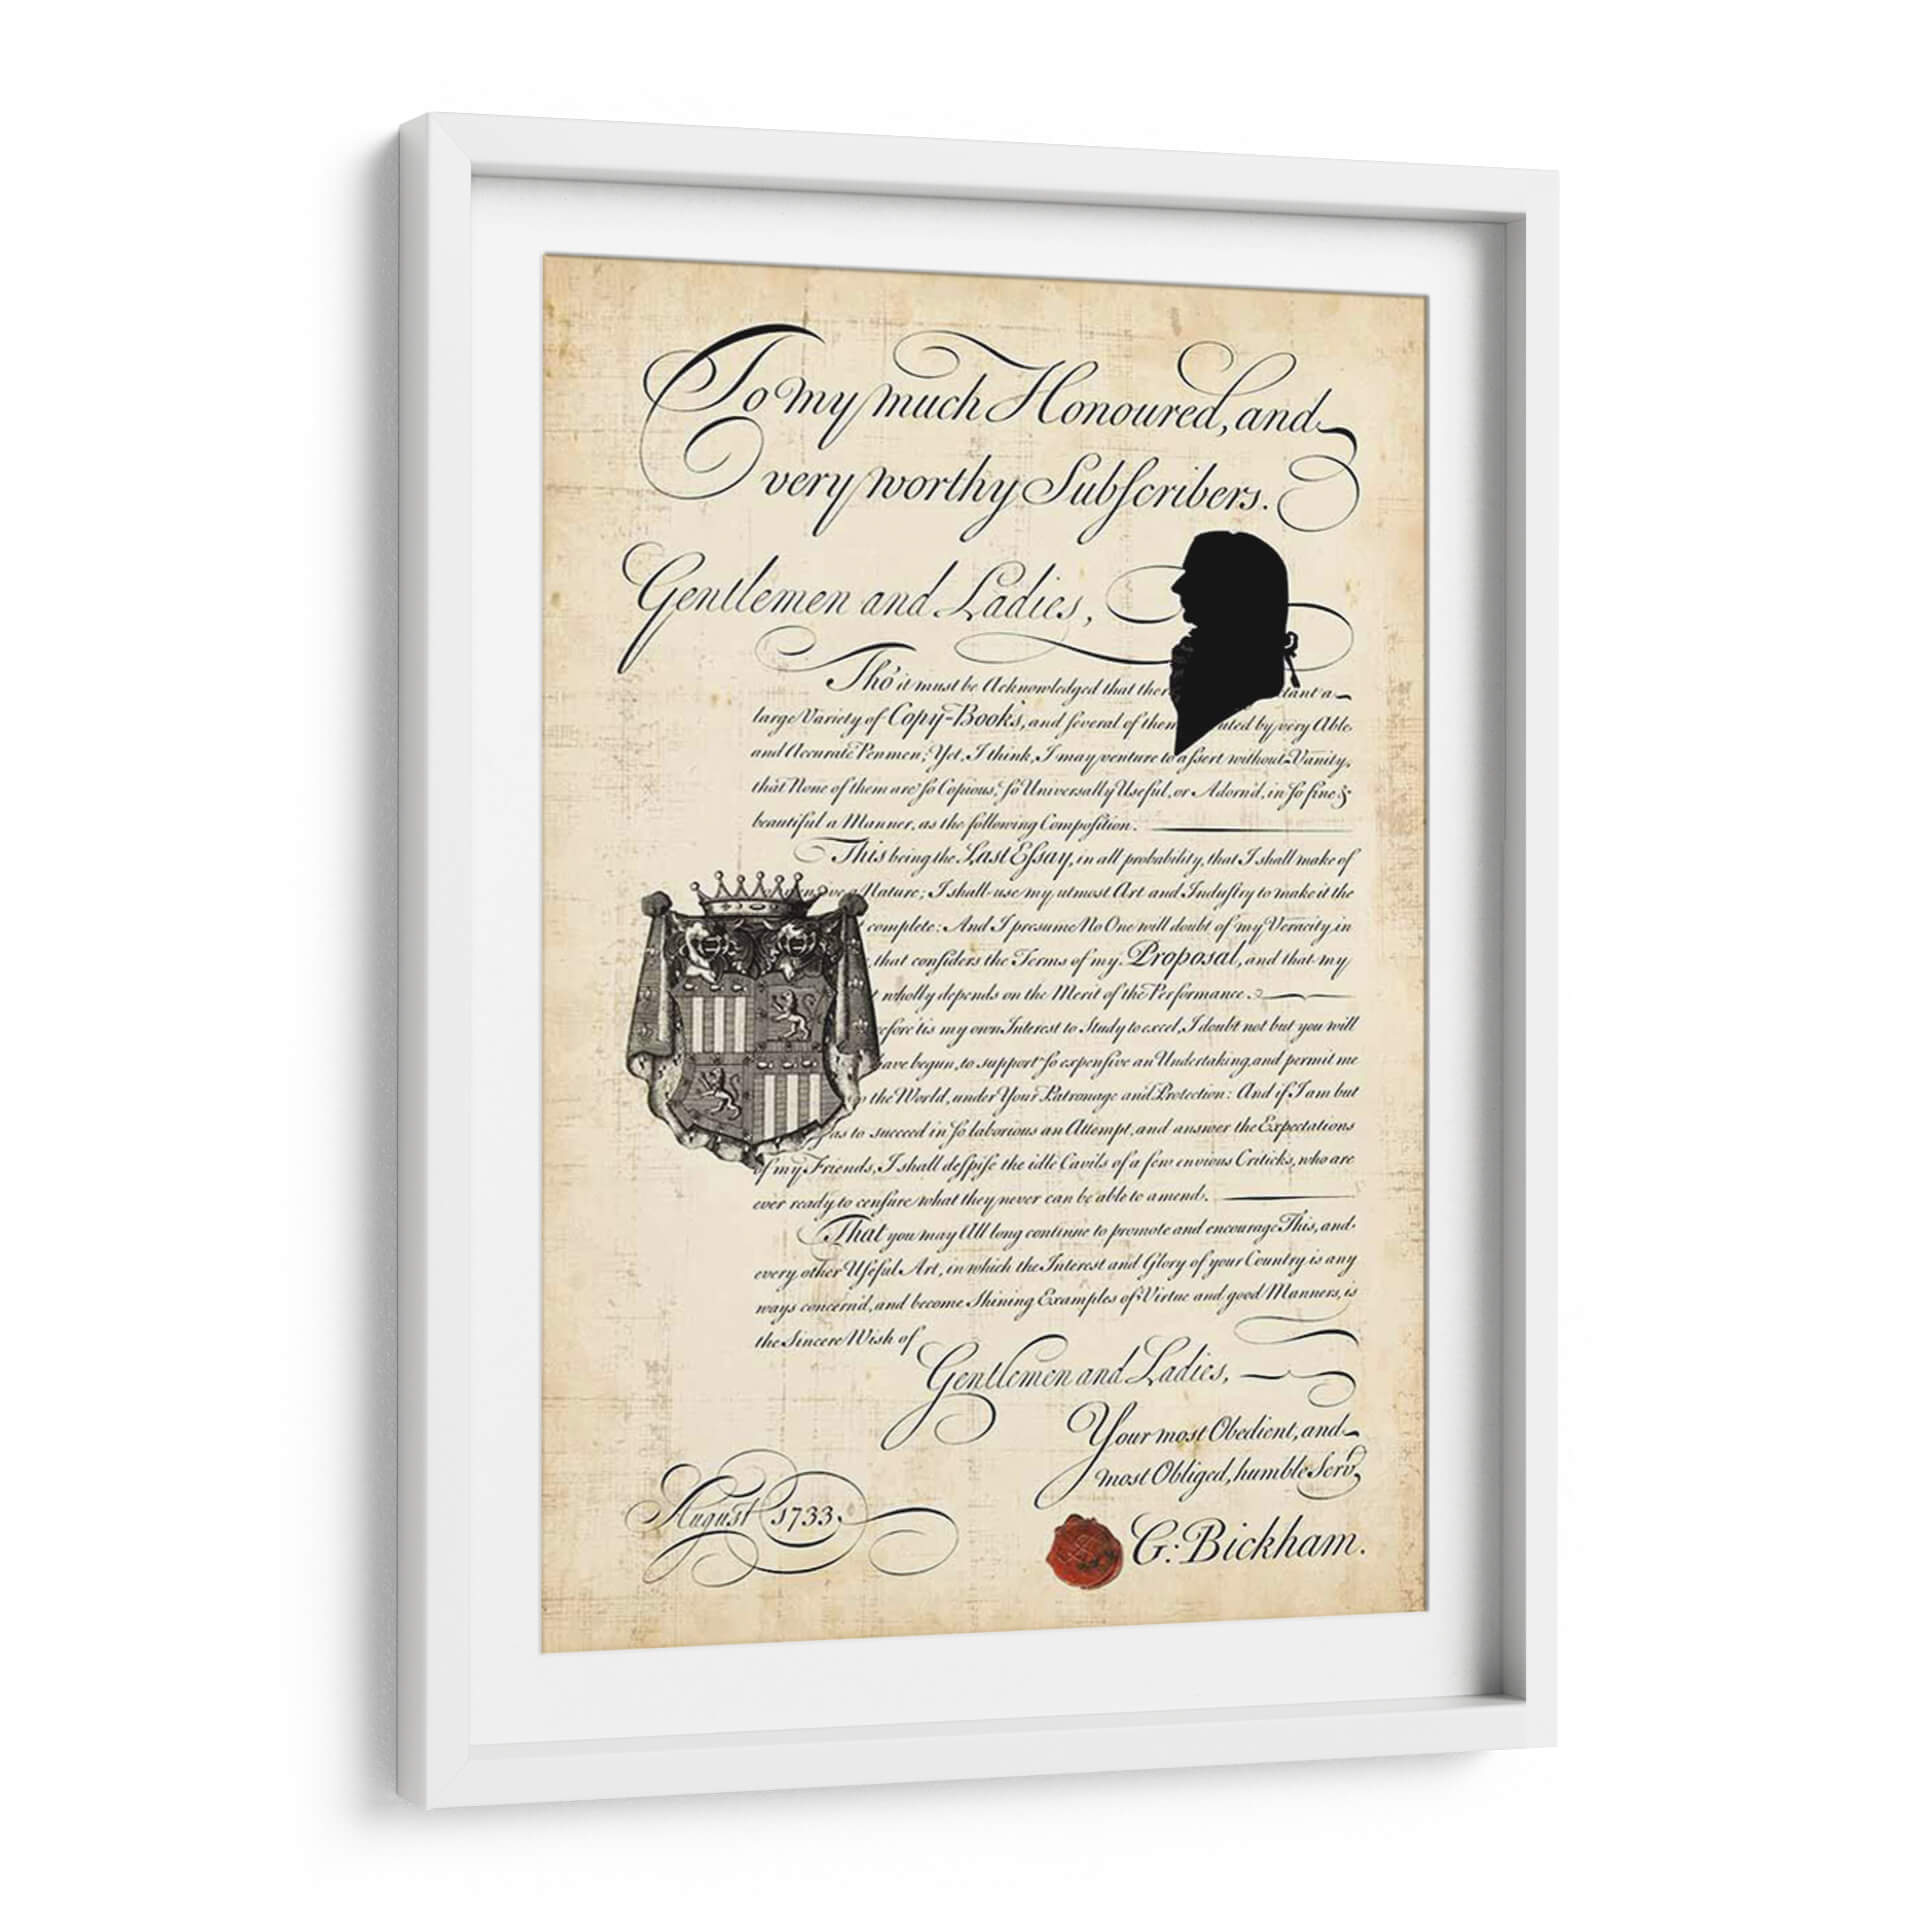 To my much Honoured, and
very worthy Subſcribers.
Gentlemen and Ladies,
Tho' it must be Acknowledged that ther tant a
large Variety of Copy-Books, and ſeveral of them uted by very Able
and Accurate Penmen; Yet, I think, I may venture to aſsert without Vanity,
that None of them are ſo Copious, ſo Universally Uſeful, or Adorn'd, in ſo fine &
beautiful a Manner, as the following Compoſition.
This being the Last Eſsay, in all probability, that I shall make of
ve a Nature; I shall use my utmost Art and Induſtry to make it the
complete: And I presume No One will doubt of my Veracity, in
, that conſiders the Terms of my Proposal, and that my
wholly depends on the Merit of the Performance.
efore 'tis my own Interest to Study to excel, I doubt not but you will
ave begun, to support ſo expenſive an Undertaking, and permit me
the World, under Your Patronage and Protection: And if I am but
as to succeed in ſo laborious an Attempt, and answer the Expectations
of my Friends, I shall deſpiſe the idle Cavils of a few envious Criticks, who are
ever ready to cenſure what they never can be able to amend.
That you may All long continue to promote and encourage This, and
every other Uſeful Art, in which the Interest and Glory of your Country is any
ways concern'd, and become Shining Examples of Virtue and good Manners, is
the Sincere Wish of
Gentlemen and Ladies,
Your most Obedient, and
most Obliged, humble Servt,
August 1733.
G: Bickham.